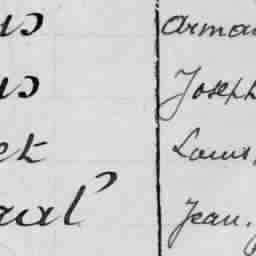 us Arman
us Joseph
et Louis,
ual Jean.